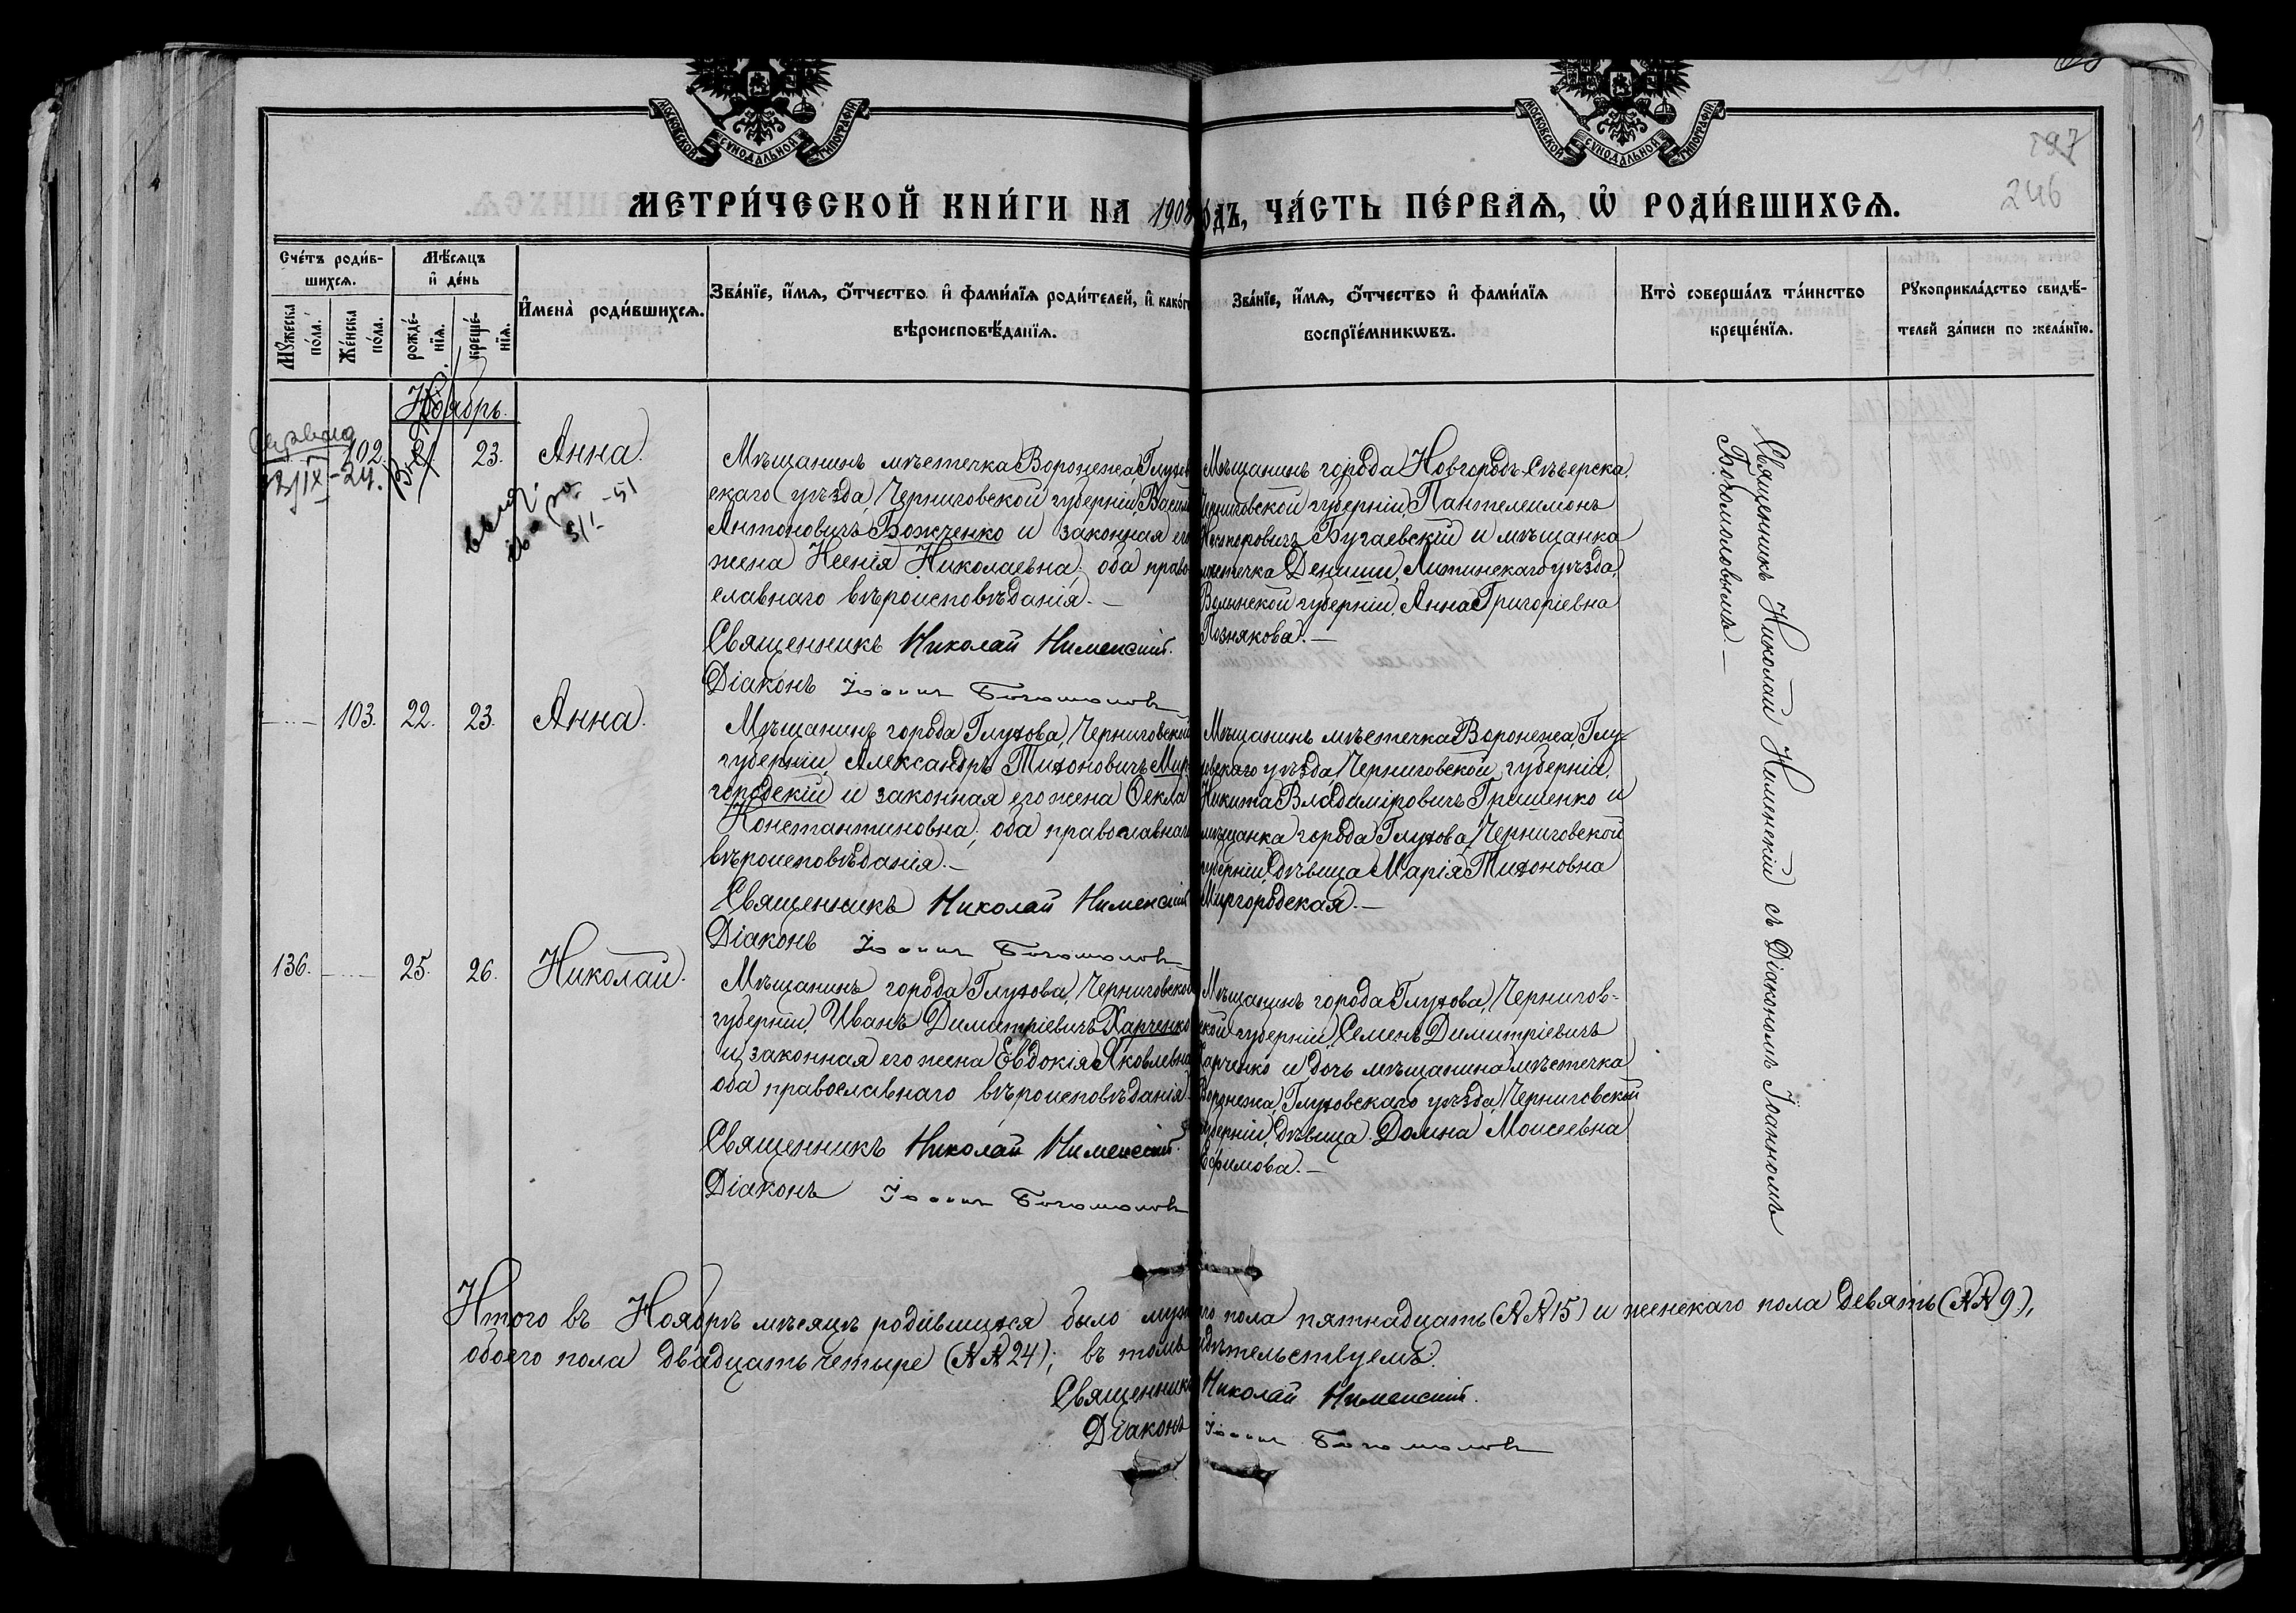 МОСКОВСКОЙ СѴНОДАЛЬНОЙ ТИПОГРАФІИ
МОСКОВСКОЙ СѴНОДАЛЬНОЙ ТИПОГРАФІИ
197
246
МЕТРИ́ЧЕСКОЙ КНИ́ГИ НА 1908 ОДЪ, ЧА́СТЬ ПЕ́РВАѦ, Ѡ҆ РОДИ́ВШИХСѦ.
Сче́тъ роди́в-
шихсѧ.
Мꙋ́жеска по́ла.
Же́нска по́ла.
Мѣ́сѧцъ
и҆ де́нь
рожде́-
нїѧ.
креще́-
нїѧ.
И҆мена̀ роди́вшихсѧ.
Зва́нїе, и҆́мѧ, ѻ҆́тчество и҆ фами́лїѧ роди́телей, и҆ како́г
вѣроисповѣ́данїѧ.
Зва́нїе, и҆́мѧ, ѻ҆́тчество и҆ фами́лїѧ
воспрїе́мникѡвъ.
Кто̀ соверша́лъ та́инство
креще́нїѧ.
Рꙋкоприкла́дство свидѣ́-
телей за́писи по жела́нїю.
Ноябрь.
102. 21 23. Анна.
IX-24.
51
Мѣщанинъ мѣстечка Воронежа, Глухов
скаго уѣзда, Черниговской губерніи, Васил
Антоновичъ Божченко и законная его
жена Ксенія Николаевна; оба право-
славнаго вѣроисповѣданія.—
Священникъ Николай Нименскій.
Діаконъ Іоаннъ Богомоловъ
Мѣщанинъ города Новгородъ-Сѣверска,
Черниговской губерніи, Пантелеимонъ
Бугаевскій и мѣщанка
мѣстечка Дениши, Волынской губерніи, Анна Григоріевна
Познякова.—
103. 22. 23. Анна.
Мѣщанинъ города Глухова, Черниговской
губерніи, Александръ Тихоновичъ Мир-
городскій и законная его жена Ѳекла
Константиновна; оба православнаго
вѣроисповѣданія.—
Священникъ Николай Нименскій
Діаконъ Іоаннъ Богомоловъ
Мѣщанинъ мѣстечка Воронежа, Глу-
ховскаго уѣзда, Черниговской губерніи,
Никита Владиміровичъ Грищенко и
мѣщанка города Глухова, Черниговской
губерніи, дѣвица Марія Тихоновна
Миргородская.—
136. 25. 26. Николай.
Мѣщанинъ города Глухова, Черниговской
губерніи, Иванъ Димитріевичъ Харченко
и законная его жена Евдокія Яковлевна
оба православнаго вѣроисповѣданія.
Священникъ Николай Нименскій.
Діаконъ Іоаннъ Богомоловъ
Мѣщанинъ города Глухова, Чернигов-
ской губерніи, Семенъ Димитріевичъ
Харченко и дочь мѣщанина мѣстечка
Воронежа, Глуховскаго уѣзда, Черниговской
губерніи, дѣвица Домна Моисеевна
Ефимова.—
Священникъ Николай Нименскій съ Діакономъ Іоанномъ
Богомоловымъ.—
Итого въ Ноябрѣ мѣсяцѣ родившихся было муж го пола пятнадцать (№№ 15) и женскаго пола девять (№№ 9),
обоего пола двадцать четыре (№№ 24); въ томъ идѣтельствуемъ:
Священникъ Николай Нименскій.
Діаконъ Іоаннъ Богомоловъ